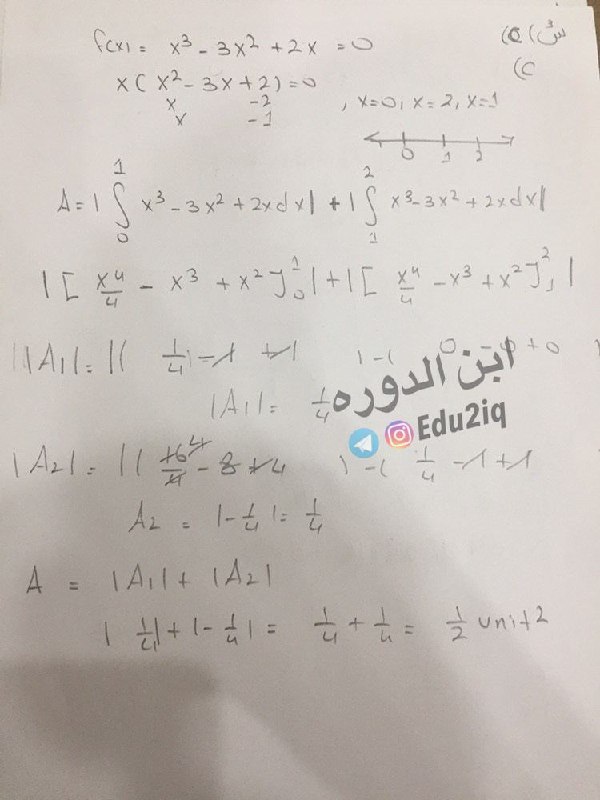 س3) (C) C)
f(x) = x³ - 3x² + 2x = 0
x( x² - 3x + 2) = 0
x -2
x -1
, x=0, x=2, x=1
0 1 2
A = | ∫₀¹ x³ - 3x² + 2x dx | + | ∫₁² x³ - 3x² + 2x dx |
| [ x⁴/4 - x³ + x² ]₀¹ | + | [ x⁴/4 - x³ + x² ]₁² |
|A₁| = |( 1/4 - 1 + 1 ) - ( 0 - 0 + 0 )
ابن الدوره
|A₁| = 1/4
Edu2iq
|A₂| = |( 16/4 4 - 8 + 4 ) - ( 1/4 - 1 + 1
A₂ = |-1/4| = 1/4
A = |A₁| + |A₂|
| 1/4 | + | -1/4 | = 1/4 + 1/4 = 1/2 unit²